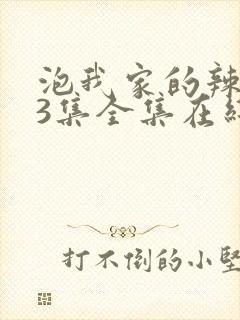 泡我家的辣
3集全集在
打不倒的小坚